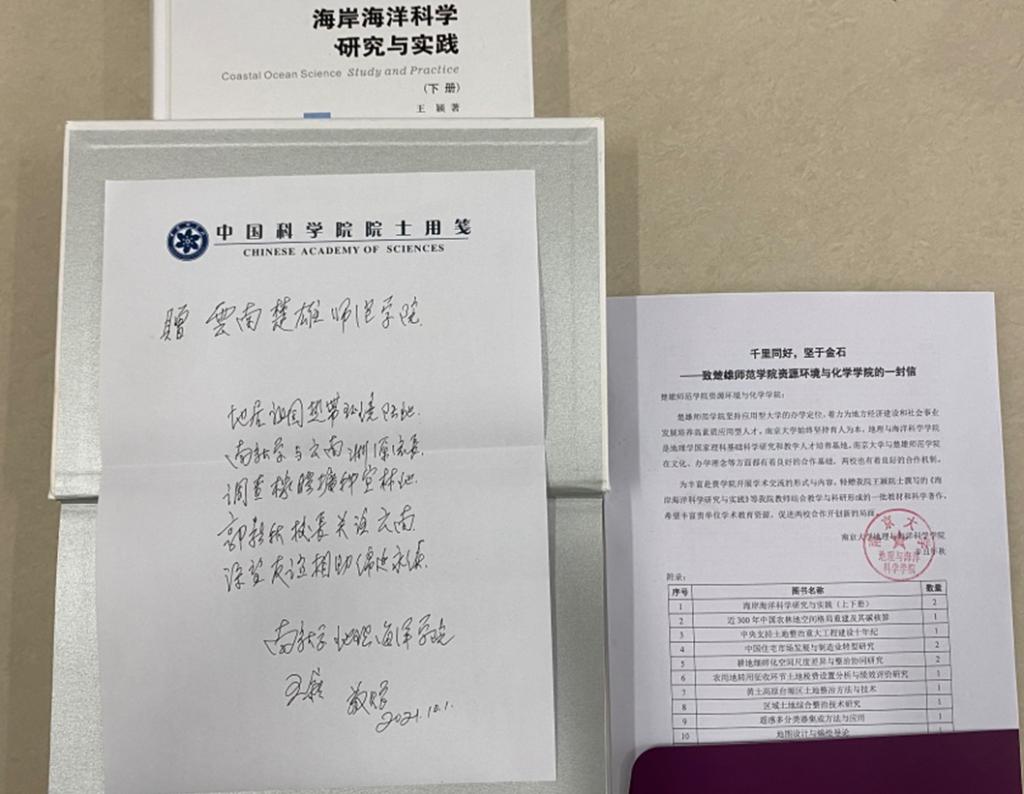 海岸海洋科学
研究与实践
Coastal Ocean Science Study and Practice
(下册)
王 颖 著
中国科学院院士用笺
CHINESE ACADEMY OF SCIENCES
贈 雲南楚雄师范学院
地居祖国热带环境陆地
南秋学与云南渊源流长
调查橡胶播种宜林地
校长关注云南
深望友谊相助绵延永续
南秋学地理海洋学院
王颖 敬赠
2021.10.1.
千里同好，坚于金石
——致楚雄师范学院资源环境与化学学院的一封信
楚雄师范学院资源环境与化学学院：
楚雄师范学院坚持应用型大学的办学定位，着力为地方经济建设和社会事业
发展培养高素质应用型人才。南京大学始终坚持育人为本，地理与海洋科学学院
是地理学国家理科基础科学研究和教学人才培养基地。南京大学与楚雄师范学院
在文化、办学理念等方面都有着良好的合作基础，两校也有着良好的合作机制。
为丰富贵学院开展学术交流的形式与内容，特赠我院王颖院士撰写的《海
岸海洋科学研究与实践》等我院教师结合教学与科研形成的一批教材和科学著作，
希望丰富贵单位学术教育资源，促进两校合作开创新的局面。
南京大学地理与海洋科学学院
辛丑年秋
南京大学
地理与海洋
科学学院
附录：
序号 图书名称 数量
1 海岸海洋科学研究与实践（上下册） 2
2 近300年中国农林地空间格局重建及其碳核算 1
3 中央支持土地整治重大工程建设十年纪 1
4 中国住宅市场发展与制造业转型研究 2
5 耕地细碎化空间尺度差异与整治协同研究 2
6 农用地转用征收环节土地税费设置分析与绩效评价研究 1
7 黄土高原台塬区土地整治方法与技术 1
8 区域土地综合整治技术研究 1
9 遥感多分类器集成方法与应用 1
10 地图设计与编绘导论 1